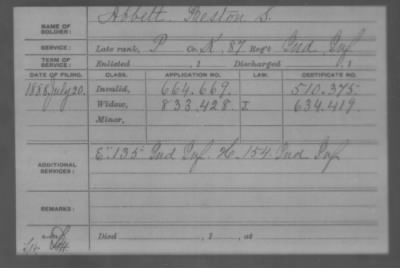 NAME OF SOLDIER: Abbett, Preston S.
SERVICE: Late rank, P Co. K, 87 Reg't Ind Inf.
TERM OF SERVICE: Enlisted , 1 Discharged , 1
DATE OF FILING. CLASS. APPLICATION NO. LAW. CERTIFICATE NO.
1888, July 20. Invalid, 664.669. 510.375
Widow, 833.428 I 634.419
Minor,
ADDITIONAL SERVICES: E. 135 Ind Inf. H. 154. Ind Inf
REMARKS:
Died , 1 , at